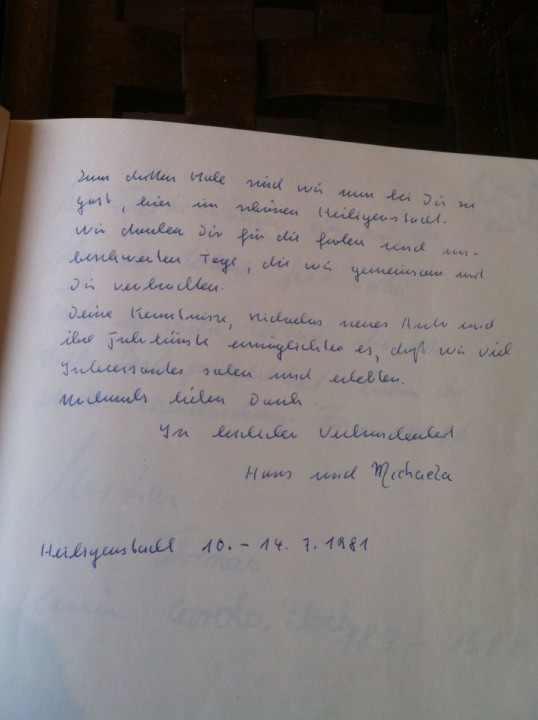 Zum dritten Male sind wir nun bei Dir zu
gast, hier im schönen Heiligenstadt.
Wir danken Dir für die frohen und un-
beschwerten Tage, die wir gemeinsam mit
Dir verbrachten.
Deine Kenntnisse, Michaelas neues Auto und
ihre Fahrkünste ermöglichten es, daß wir viel
Interessantes sahen und erlebten.
Nochmals lieben Dank.
In herzlicher Verbundenheit
Hans und Michaela
Heiligenstadt 10. - 14. 7. 1981
Thomas
Carola